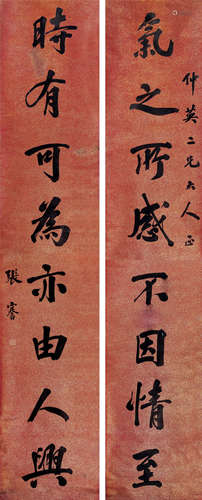 仲英二兄大人正
氣之所感不因情至
時有可為亦由人興
張謇